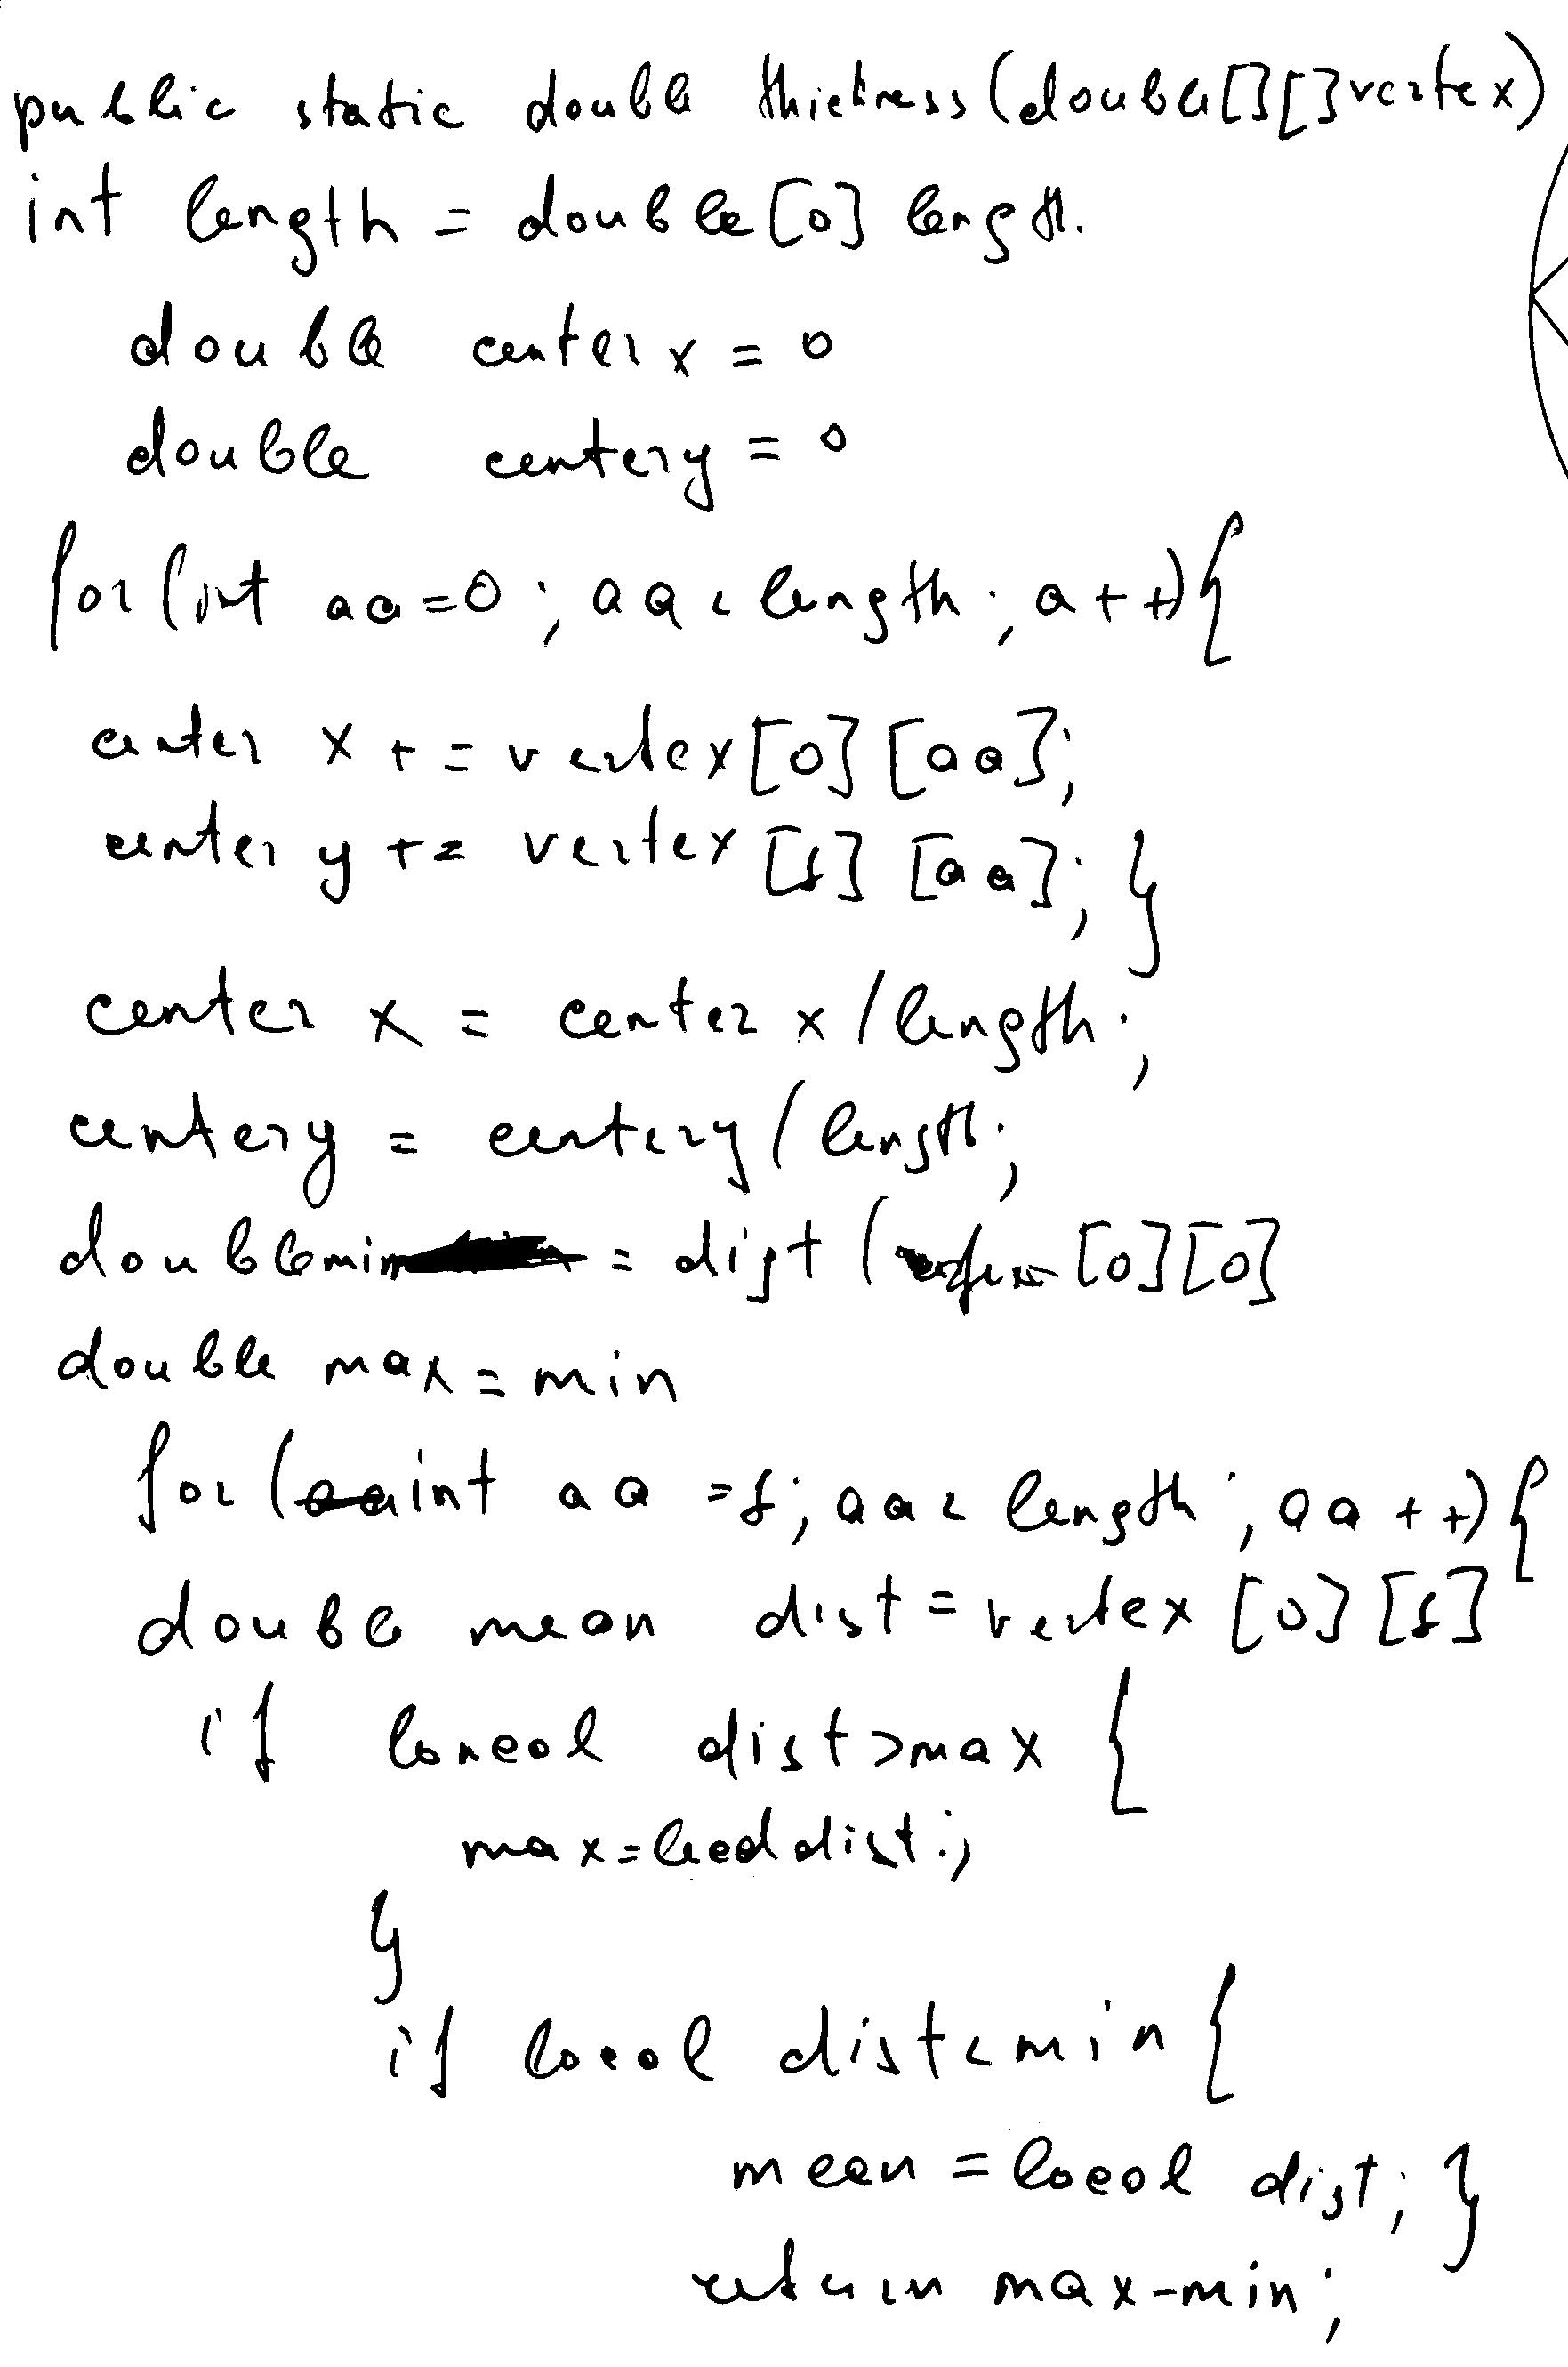 public static double thickness(double[][]vertex)
int length = double[0] length.
double center x = 0
double centery = 0
for(int aa=0; aa<length; a++){
center x += vertex[0][aa];
center y += vertex[1][aa];}
center x = center x/length;
centery = centery/length;
double min = dist( [0][0]
double max=min
for(int aa =1; aa<length; aa++){
double mean dist = vertex [0][1]
if dist>max {
max= dist;
}
if local dist<min{
mean = local dist;}
return max-min;